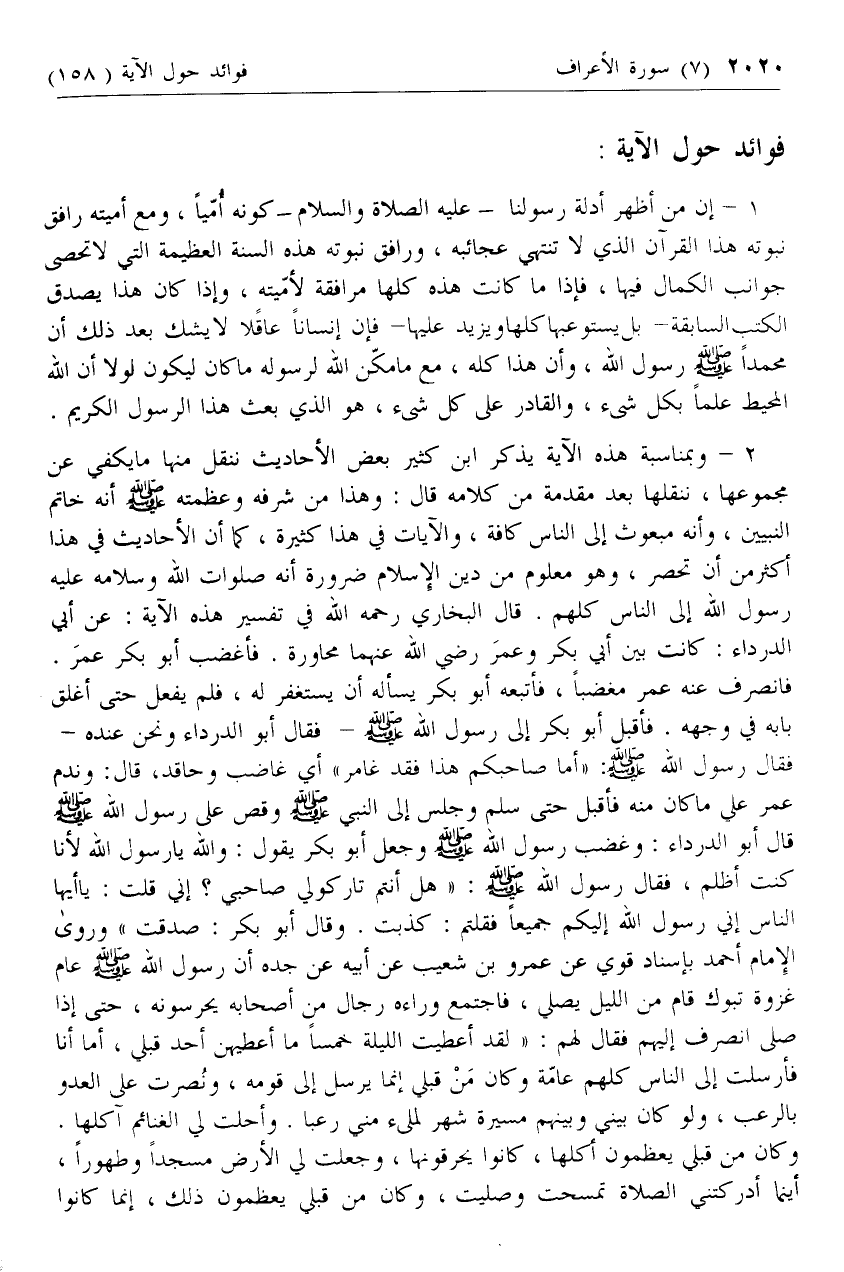 ٢٠٢٠ (٧) سورة الأعراف فوائد حول الآية ( ١٥٨)
فوائد حول الآية :
١ – إن من أظهر أدلة رسولنا – عليه الصلاة والسلام – كونه أمّياً ، ومع أميته رافق
نبوته هذا القرآن الذي لا تنتهي عجائبه ، ورافق نبوته هذه السنة العظيمة التي لاتحصى
جوانب الكمال فيها ، فإذا ما كانت هذه كلها مرافقة لأمّيته ، وإذا كان هذا يصدق
الكتب السابقة – بل يستوعبها كلها ويزيد عليها – فإن إنساناً عاقلًا لايشك بعد ذلك أن
محمداً ﷺ رسول الله ، وأن هذا كله ، مع مامكّن الله لرسوله ماكان ليكون لولا أن الله
المحيط علماً بكل شيء ، والقادر على كل شيء ، هو الذي بعث هذا الرسول الكريم .
٢ – وبمناسبة هذه الآية يذكر ابن كثير بعض الأحاديث ننقل منها مايكفي عن
مجموعها ، ننقلها بعد مقدمة من كلامه قال : وهذا من شرفه وعظمته ﷺ أنه خاتم
النبيين ، وأنه مبعوث إلى الناس كافة ، والآيات في هذا كثيرة ، كما أن الأحاديث في هذا
أكثرمن أن تحصر ، وهو معلوم من دين الإسلام ضرورة أنه صلوات الله وسلامه عليه
رسول الله إلى الناس كلهم . قال البخاري رحمه الله في تفسير هذه الآية : عن أبي
الدرداء : كانت بين أبي بكر وعمرَ رضي الله عنهما محاورة . فأغضب أبو بكر عمرَ .
فانصرف عنه عمر مغضباً ، فأتبعه أبو بكر يسأله أن يستغفر له ، فلم يفعل حتى أغلق
بابه في وجهه . فأقبل أبو بكر إلى رسول الله ﷺ – فقال أبو الدرداء ونحن عنده –
فقال رسول الله ﷺ: «أما صاحبكم هذا فقد غامر» أي غاضب وحاقد، قال: وندم
عمر على ماكان منه فأقبل حتى سلم وجلس إلى النبي ﷺ وقص على رسول الله ﷺ
قال أبو الدرداء : وغضب رسول الله ﷺ وجعل أبو بكر يقول : والله يارسول الله لأنا
كنت أظلم ، فقال رسول الله ﷺ : « هل أنتم تاركولي صاحبي ؟ إني قلت : ياأيها
الناس إني رسول الله إليكم جميعاً فقلتم : كذبت . وقال أبو بكر : صدقت » وروىٰ
الإمام أحمد بإسناد قوي عن عمرو بن شعيب عن أبيه عن جده أن رسول الله ﷺ عام
غزوة تبوك قام من الليل يصلي ، فاجتمع وراءه رجال من أصحابه يحرسونه ، حتى إذا
صلى انصرف إليهم فقال لهم : « لقد أعطيت الليلة خمساً ما أعطيهن أحد قبلي ، أما أنا
فأرسلت إلى الناس كلهم عامّة وكان مَنْ قبلي إنما يرسل إلى قومه ، ونُصرت على العدو
بالرعب ، ولو كان بيني وبينهم مسيرة شهر لملىء مني رعبا . وأحلت لي الغنائم آكلها .
وكان من قبلي يعظمون أكلها ، كانوا يحرقونها ، وجعلت لي الأرض مسجداً وطهوراً ،
أينما أدركتني الصلاة تمسحت وصليت ، وكان من قبلي يعظمون ذلك ، إنما كانوا